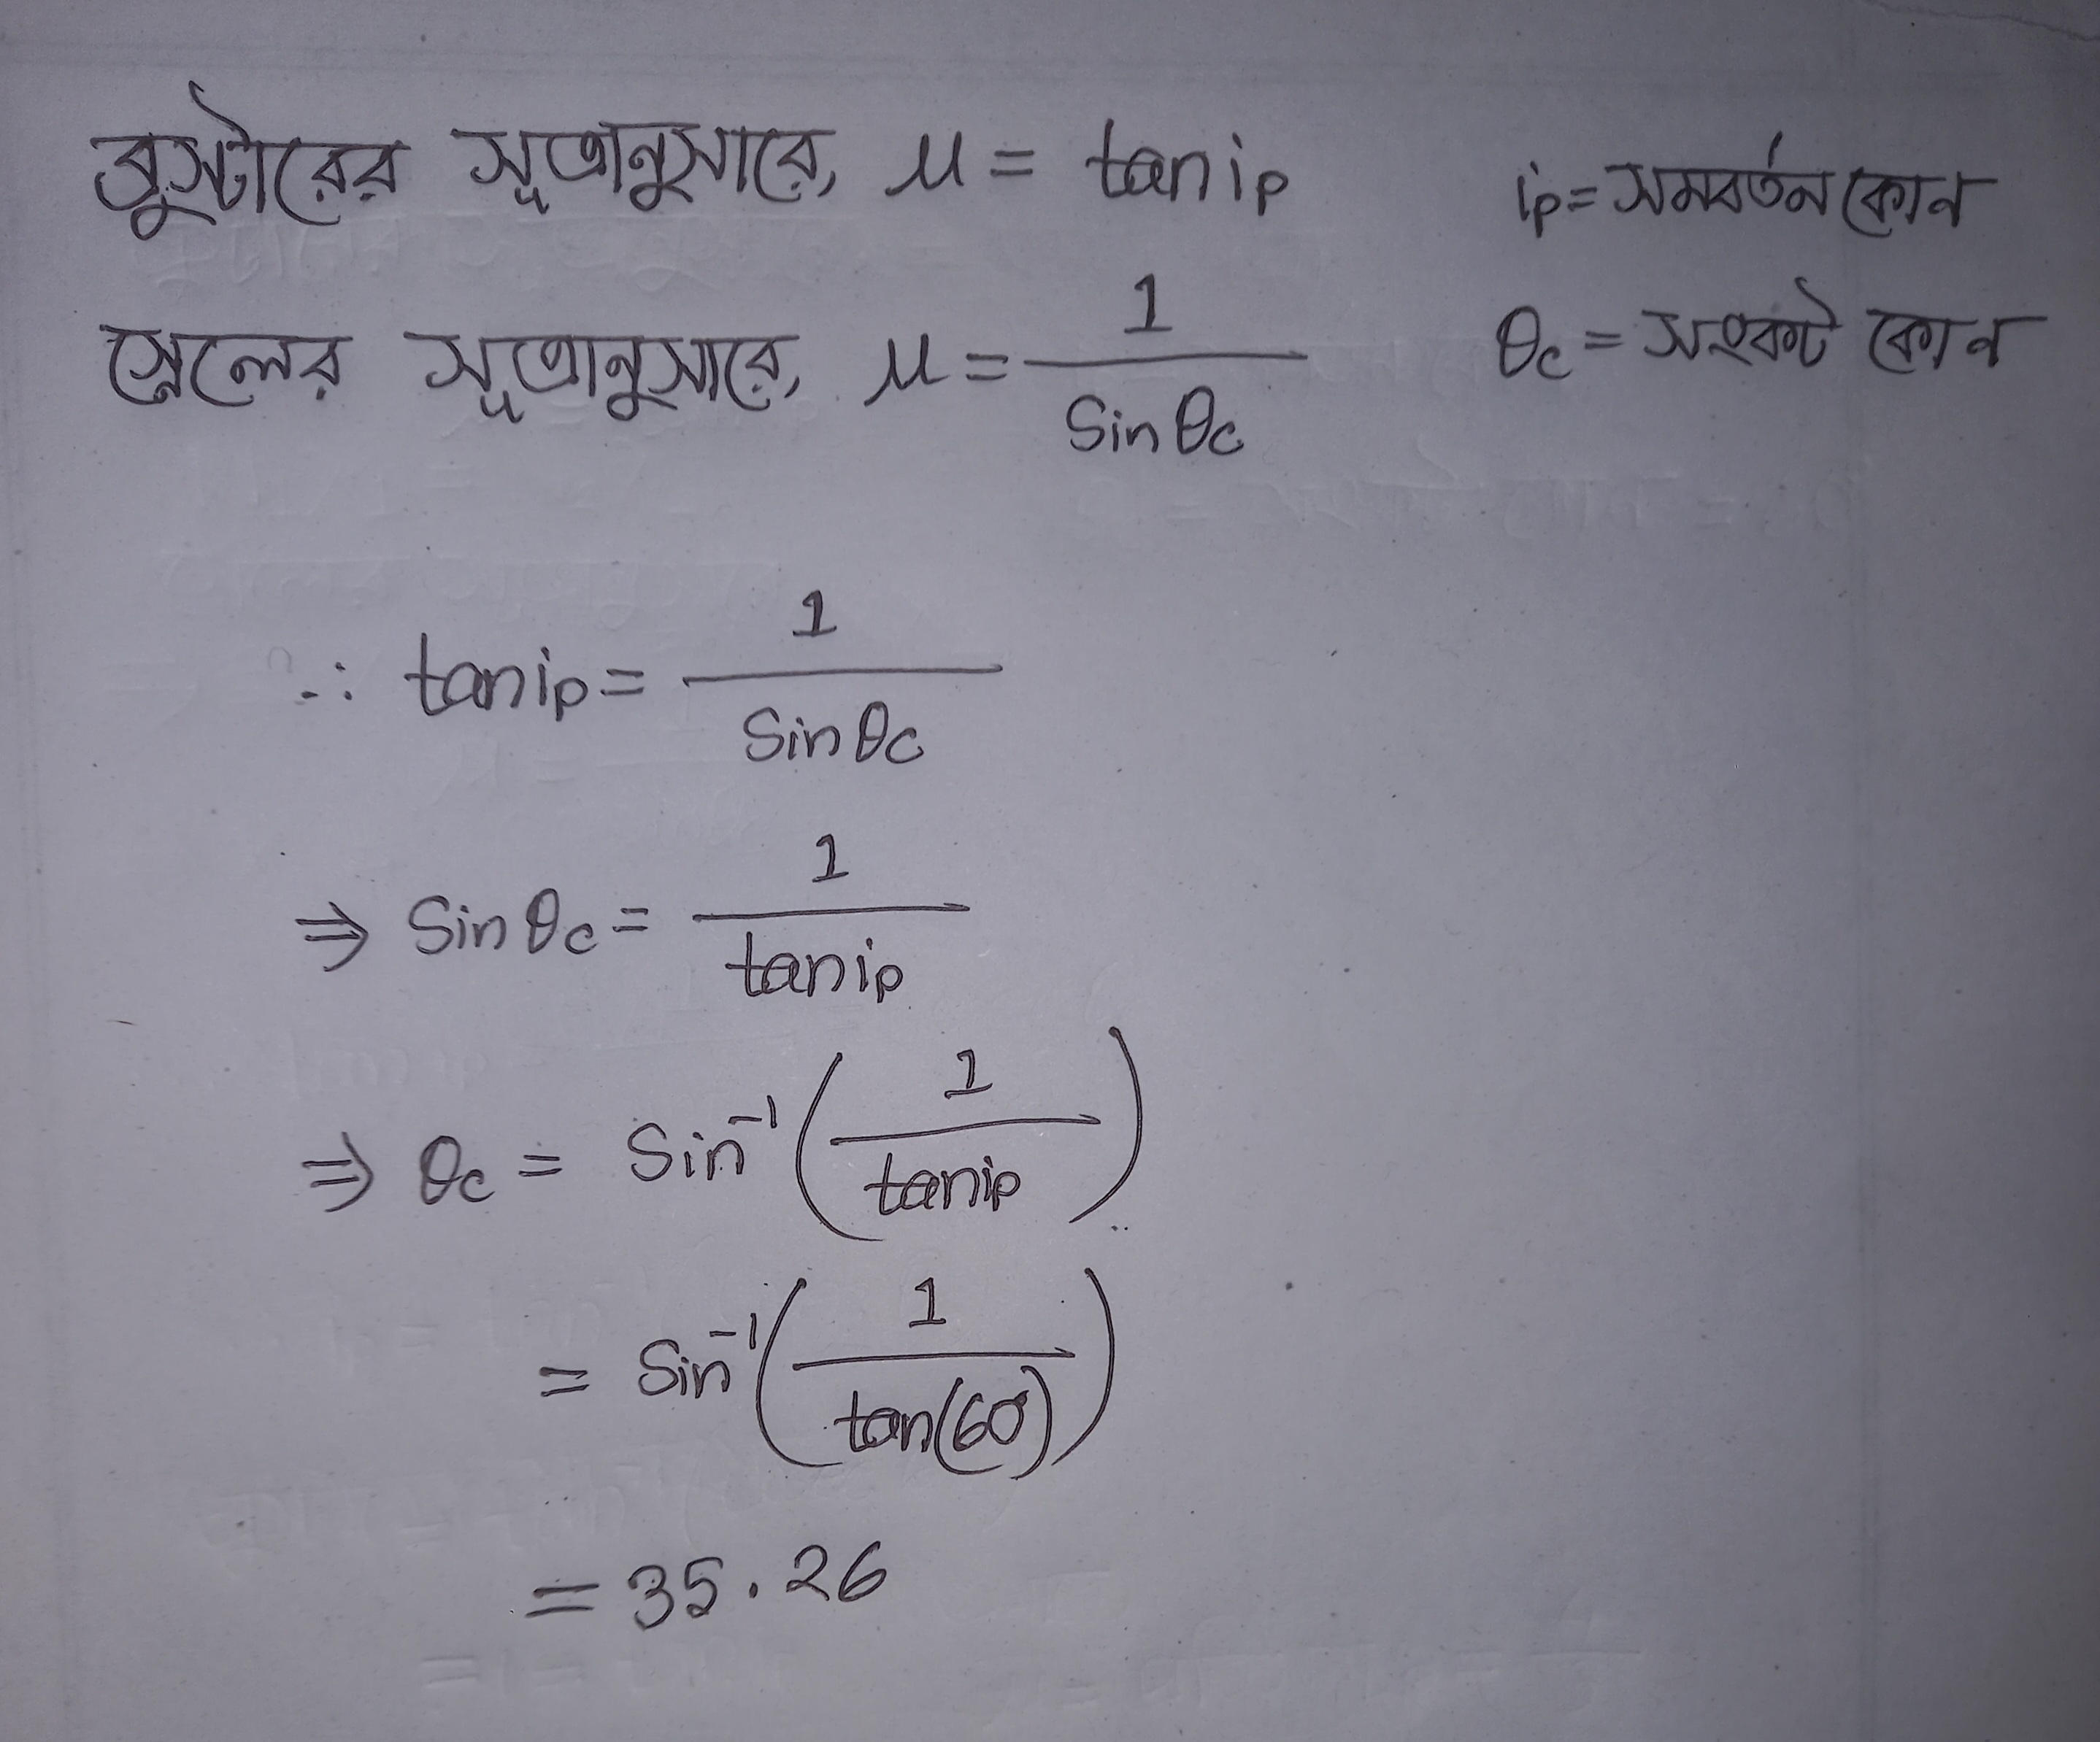 ব্রুস্টারের সূত্রানুসারে, μ = tan ip    ip = সমবর্তন কোন
স্নেলের সূত্রানুসারে, μ = 1 / Sin θc    θc = সংকট কোন
∴ tan ip = 1 / Sin θc
⇒ Sin θc = 1 / tan ip
⇒ θc = Sin⁻¹ (1 / tan ip)
= Sin⁻¹ (1 / tan(60°))
= 35.26